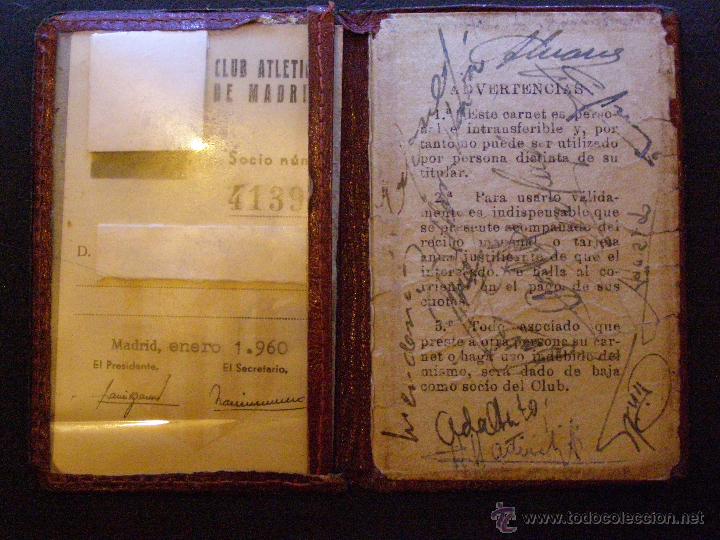 CLUB ATLETI
DE MADRI
Socio núm
4139
D.
Madrid, enero 1.960
El Presidente,
El Secretario,
ADVERTENCIAS
1.ª Este carnet es perso-
nal e intransferible y, por
tanto no puede ser utilizado
por persona distinta de su
titular.
2.ª Para usarlo válida-
mente es indispensable que
se presente acompañado del
recibo mensual o tarjeta
anual justificante de que el
interesado se halla al co-
rriente en el pago de sus
cuotas.
3.ª Todo asociado que
preste a otra persona su car-
net o haga uso indebido del
mismo, será dado de baja
como socio del Club.
Adelardo
www.todocoleccion.net